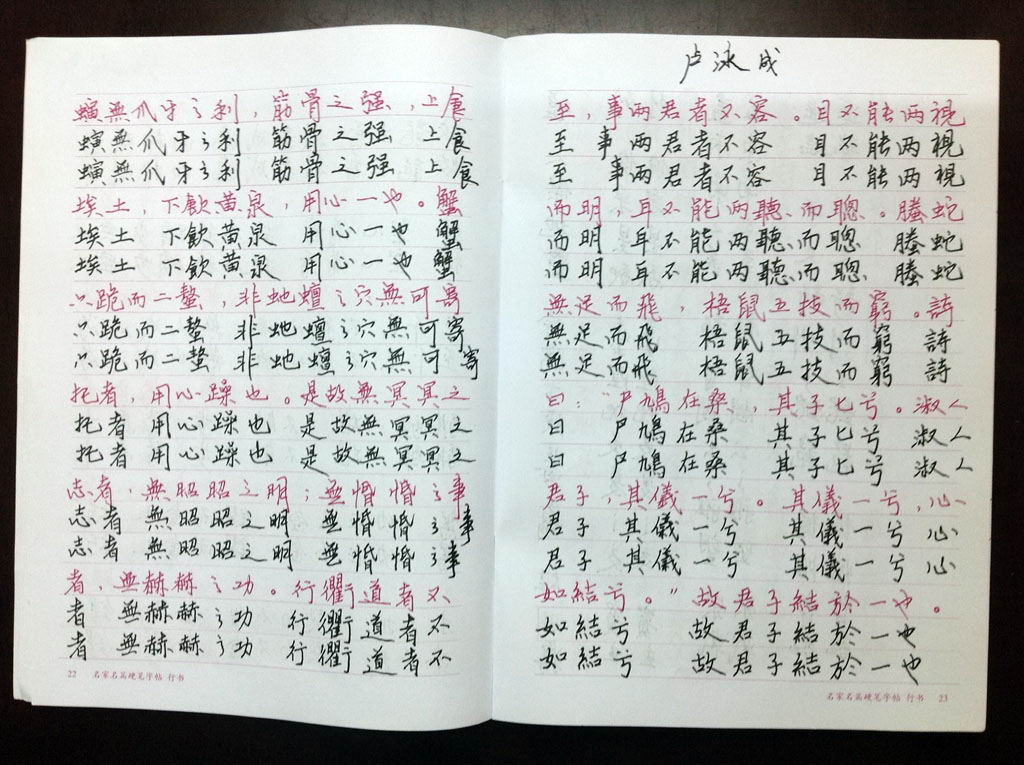 螾無爪牙之利，筋骨之强，上食
螾無爪牙之利 筋骨之强 上食
螾無爪牙之利 筋骨之强 上食
埃土，下飲黄泉，用心一也。蟹
埃土 下飲黄泉 用心一也 蟹
埃土 下飲黄泉 用心一也 蟹
六跪而二螯，非虵蟺之穴無可寄
六跪而二螯 非虵蟺之穴無可寄
六跪而二螯 非虵蟺之穴無可寄
托者，用心躁也。是故無冥冥之
托者 用心躁也 是故無冥冥之
托者 用心躁也 是故無冥冥之
志者，無昭昭之明；無惛惛之事
志者 無昭昭之明 無惛惛之事
志者 無昭昭之明 無惛惛之事
者，無赫赫之功。行衢道者不
者 無赫赫之功 行衢道者不
者 無赫赫之功 行衢道者不
22 名家名篇硬笔字帖 行书
卢泳成
至，事两君者不容。目不能两視
至 事两君者不容 目不能两視
至 事两君者不容 目不能两視
而明，耳不能两聽而聰。螣蛇
而明 耳不能两聽而聰 螣蛇
而明 耳不能两聽而聰 螣蛇
無足而飛，梧鼠五技而窮。詩
無足而飛 梧鼠五技而窮 詩
無足而飛 梧鼠五技而窮 詩
曰：“尸鳩在桑，其子七兮。淑人
曰 尸鳩在桑 其子七兮 淑人
曰 尸鳩在桑 其子七兮 淑人
君子，其儀一兮。其儀一兮，心
君子 其儀一兮 其儀一兮 心
君子 其儀一兮 其儀一兮 心
如結兮。”故君子結於一也。
如結兮 故君子結於一也
如結兮 故君子結於一也
名家名篇硬笔字帖 行书 23